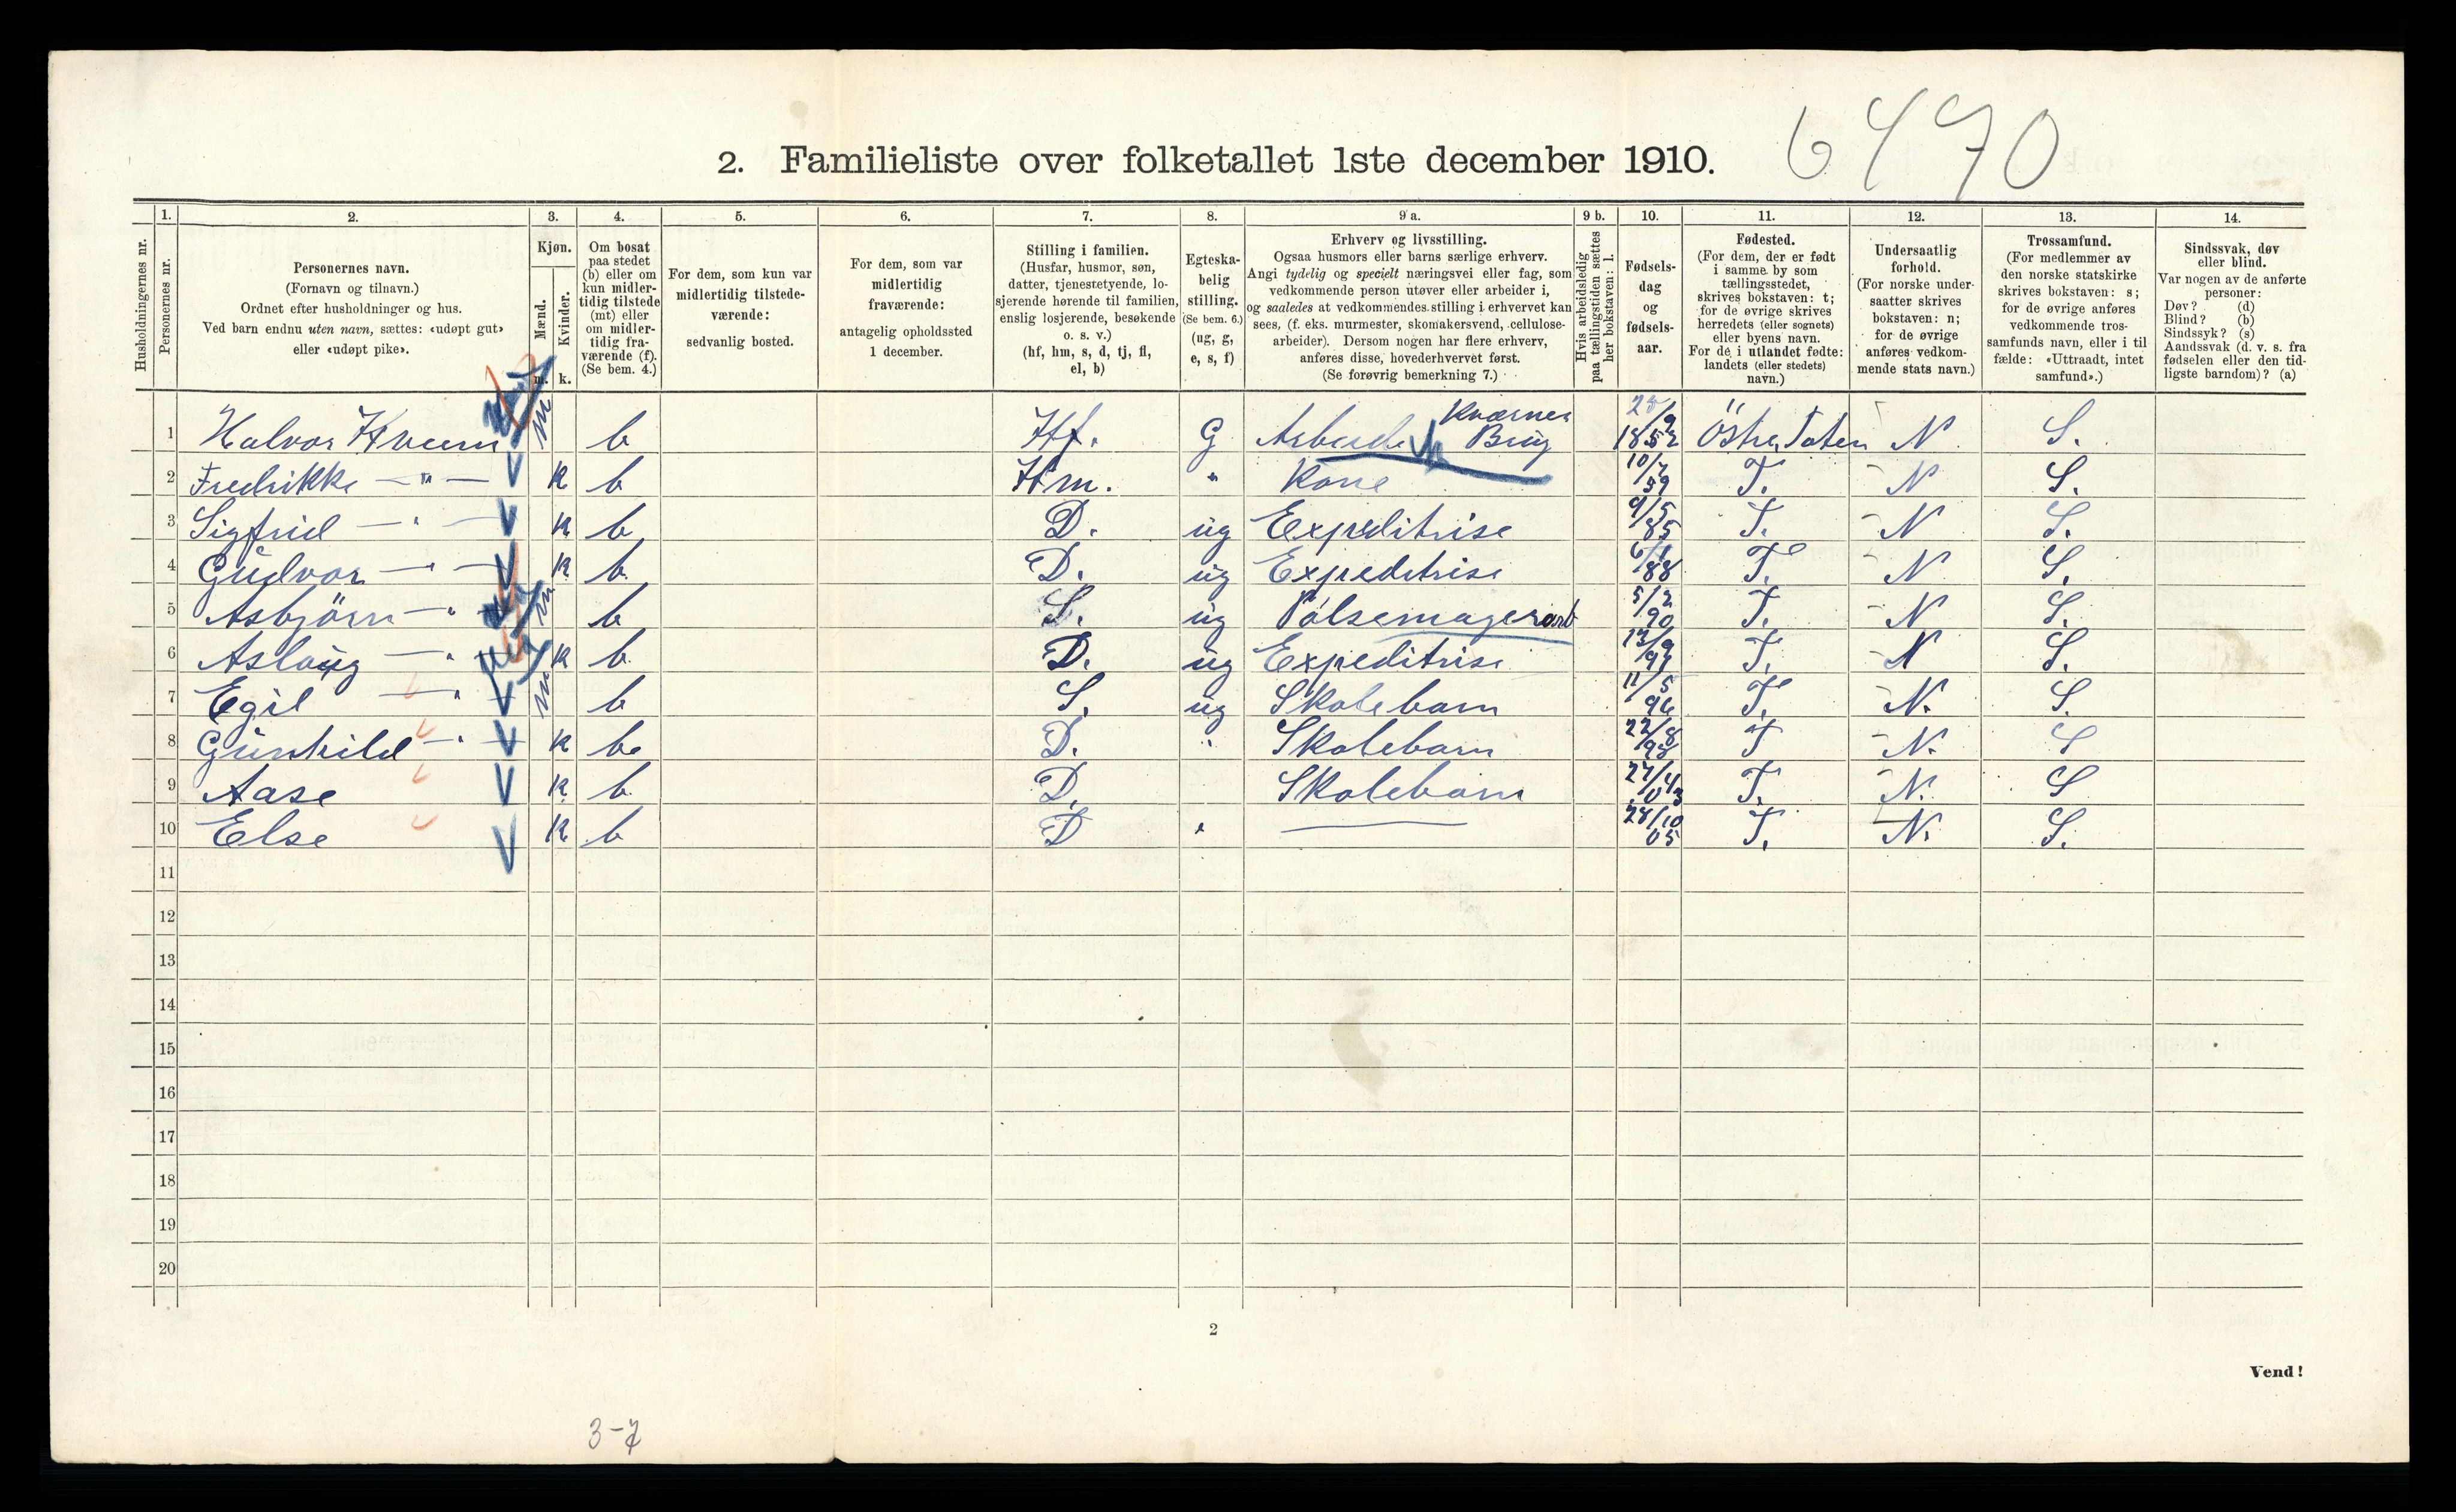 6470
2. Familieliste over folketallet 1ste december 1910.
1. 2. 3. 4. 5. 6. 7. 8. 9 a. 9 b. 10. 11. 12. 13. 14.
Husholdningernes nr.
Personernes nr.
Personernes navn.
(Fornavn og tilnavn.)
Ordnet efter husholdninger og hus.
Ved barn endnu uten navn, sættes: «udøpt gut»
eller «udøpt pike».
Kjøn.
Mænd.
Kvinder.
m. k.
Om bosat
paa stedet
(b) eller om
kun midler-
tidig tilstede
(mt) eller
om midler-
tidig fra-
værende (f).
(Se bem. 4.)
For dem, som kun var
midlertidig tilstede-
værende:
sedvanlig bosted.
For dem, som var
midlertidig
fraværende:
antagelig opholdssted
1 december.
Stilling i familien.
(Husfar, husmor, søn,
datter, tjenestetyende, lo-
sjerende hørende til familien,
enslig losjerende, besøkende
o. s. v.)
(hf, hm, s, d, tj, fl,
el, b)
Egteska-
belig
stilling.
(Se bem. 6.)
(ug, g,
e, s, f)
Erhverv og livsstilling.
Ogsaa husmors eller barns særlige erhverv.
Angi tydelig og specielt næringsvei eller fag, som
vedkommende person utøver eller arbeider i,
og saaledes at vedkommendes stilling i erhvervet kan
sees, (f. eks. murmester, skomakersvend, cellulose-
arbeider). Dersom nogen har flere erhverv,
anføres disse, hovederhvervet først.
(Se forøvrig bemerkning 7.)
Hvis arbeidsledig
paa tællingstiden sættes
her bokstaven: l.
Fødsels-
dag
og
fødsels-
aar.
Fødested.
(For dem, der er født
i samme by som
tællingsstedet,
skrives bokstaven: t;
for de øvrige skrives
herredets (eller sognets)
eller byens navn.
For de i utlandet fødte:
landets (eller stedets)
navn.)
Undersaatlig
forhold.
(For norske under-
saatter skrives
bokstaven: n;
for de øvrige
anføres vedkom-
mende stats navn.)
Trossamfund.
(For medlemmer av
den norske statskirke
skrives bokstaven: s;
for de øvrige anføres
vedkommende tros-
samfunds navn, eller i til-
fælde: «Uttraadt, intet
samfund».)
Sindssvak, døv
eller blind.
Var nogen av de anførte
personer:
Døv? (d)
Blind? (b)
Sindssyk? (s)
Aandssvak (d. v. s. fra
fødselen eller den tid-
ligste barndom)? (a)
1 Halvor Kveem m b Hf. G Arbeider Kværner Brug 28/9 1852 Östre Toten N S.
2 Fredrikke —"— k b Hm. " Kone 10/7 59 T. N S.
3 Sigfrid —"— k b D. ug Expeditrise 9/5 85 T. N S.
4 Gudvor —"— k b. D. ug Expeditrise 88 T. N S.
5 Asbjörn —"— m b S. ug Pölsemagerarb 5/2 90 T. N S.
6 Aslaug —"— k b. D. ug Expeditrise 13/9 91 T. N S.
7 Egil —"— m b S. ug Skolebarn 11/5 96 T. N. S.
8 Gunhild —"— k b. D. " Skolebarn 22/8 98 T N. S
9 Aase k b. D. Skolebarn 27/4 03 T. N. S
10 Else k b D " — 28/10 05 T. N. S.
11
12
13
14
15
16
17
18
19
20
2
Vend!
3-7